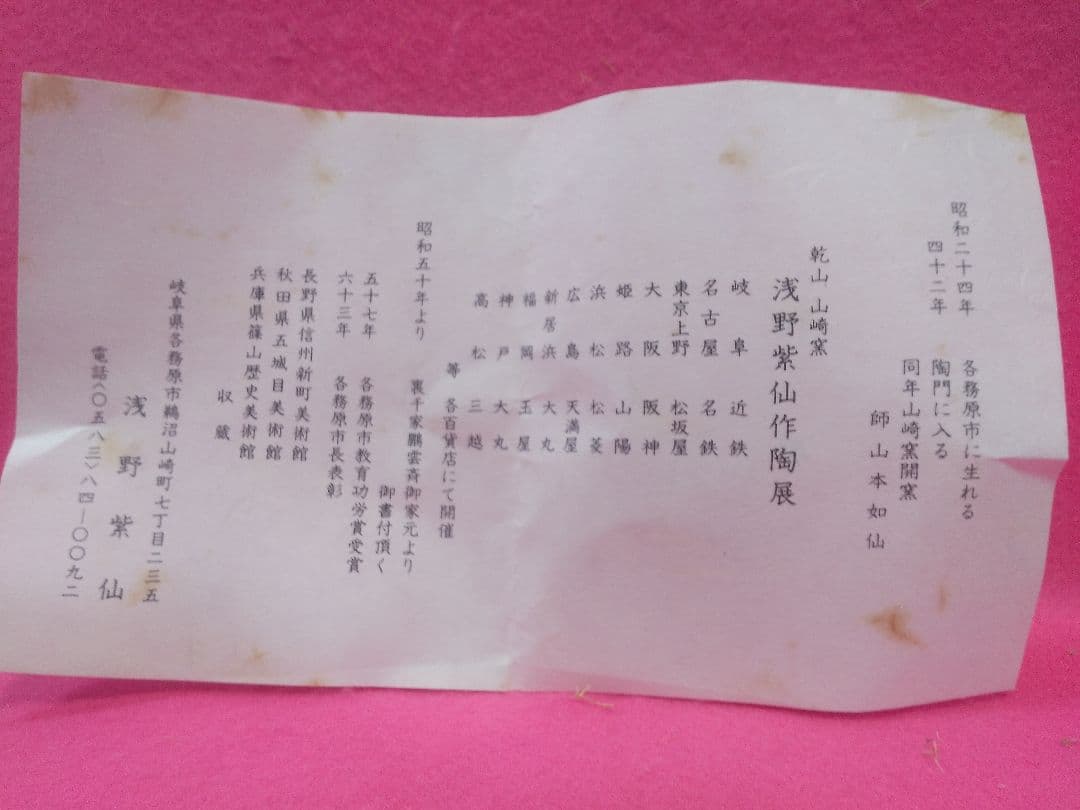 昭和二十四年　各務原市に生れる
四十二年　陶門に入る
同年山崎窯開窯
師　山本如仙
乾山　山崎窯
浅野紫仙作陶展
岐阜　近鉄
名古屋　名鉄
東京上野　松坂屋
大阪　阪神
姫路　山陽
浜松　松菱
広島　天満屋
新居浜　大丸
福岡　玉屋
神戸　大丸
高松　三越
等　各百貨店にて開催
昭和五十年より　裏千家鵬雲斎御家元より
御書付頂く
五十七年　各務原市教育功労賞受賞
六十三年　各務原市長表彰
長野県信州新町美術館
秋田県五城目美術館
兵庫県篠山歴史美術館
収蔵
岐阜県各務原市鵜沼山崎町七丁目二三五
浅野紫仙
電話〈〇五八三〉八四—〇〇九二